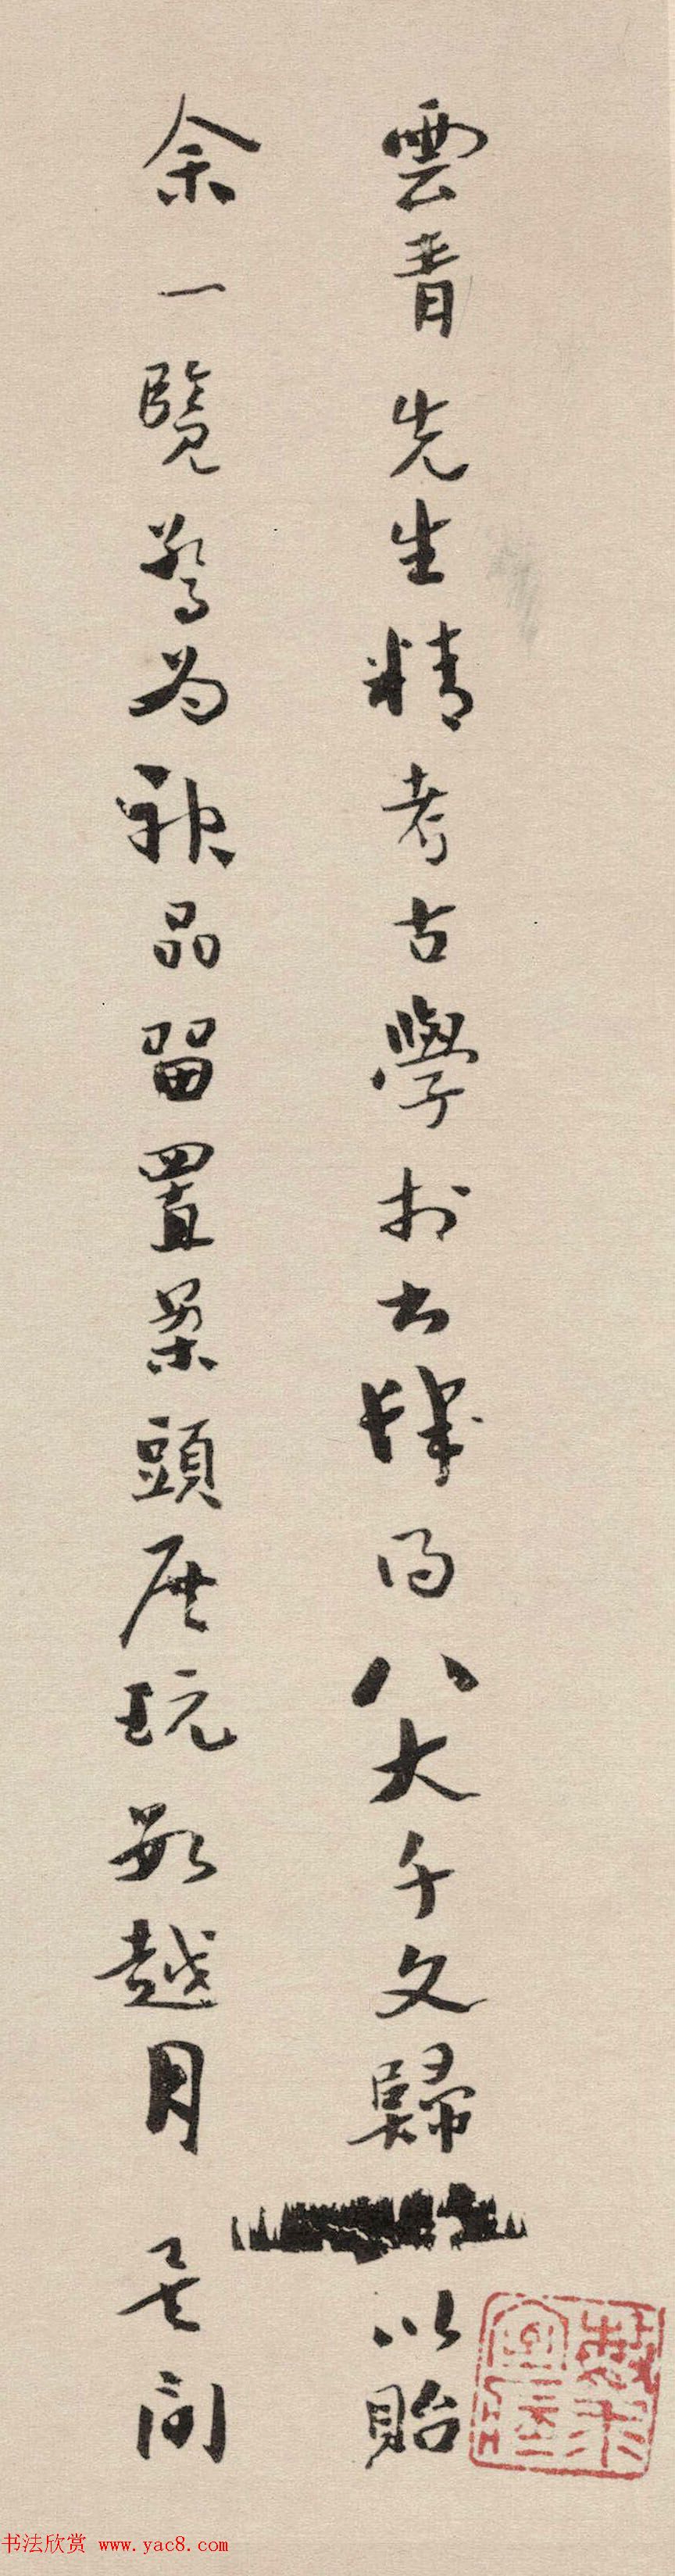 雲青先生精考古學於古肆得八大千文歸以貽
余一覽驚為神品留置案頭展玩數越月其間
书法欣赏 www.yac8.com